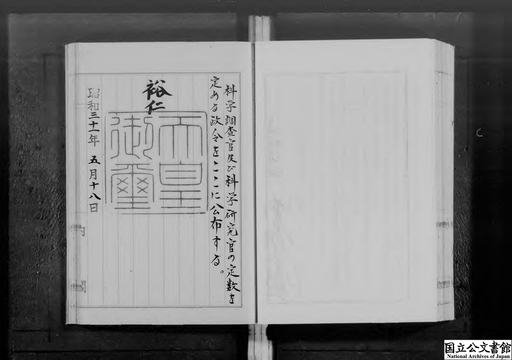 科学調査官及び科学研究官の定数を
定める政令をここに公布する。
裕仁
天皇
御璽
昭和三十一年 五月十八日
国立公文書館
National Archives of Japan